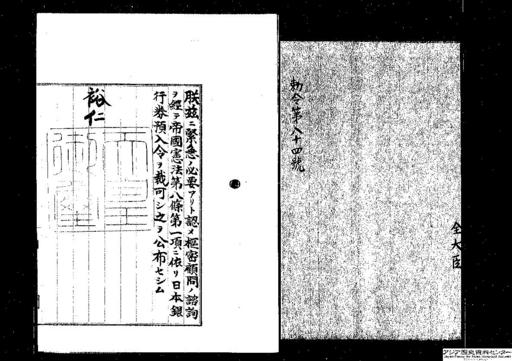 勅令第八十四號
全大臣
朕玆ニ緊急ノ必要アリト認メ樞密顧問ノ諮詢
ヲ經テ帝國憲法第八條第一項ニ依リ日本銀
行券預入令ヲ裁可シ之ヲ公布セシム
裕仁
天皇
御璽
アジア歴史資料センター